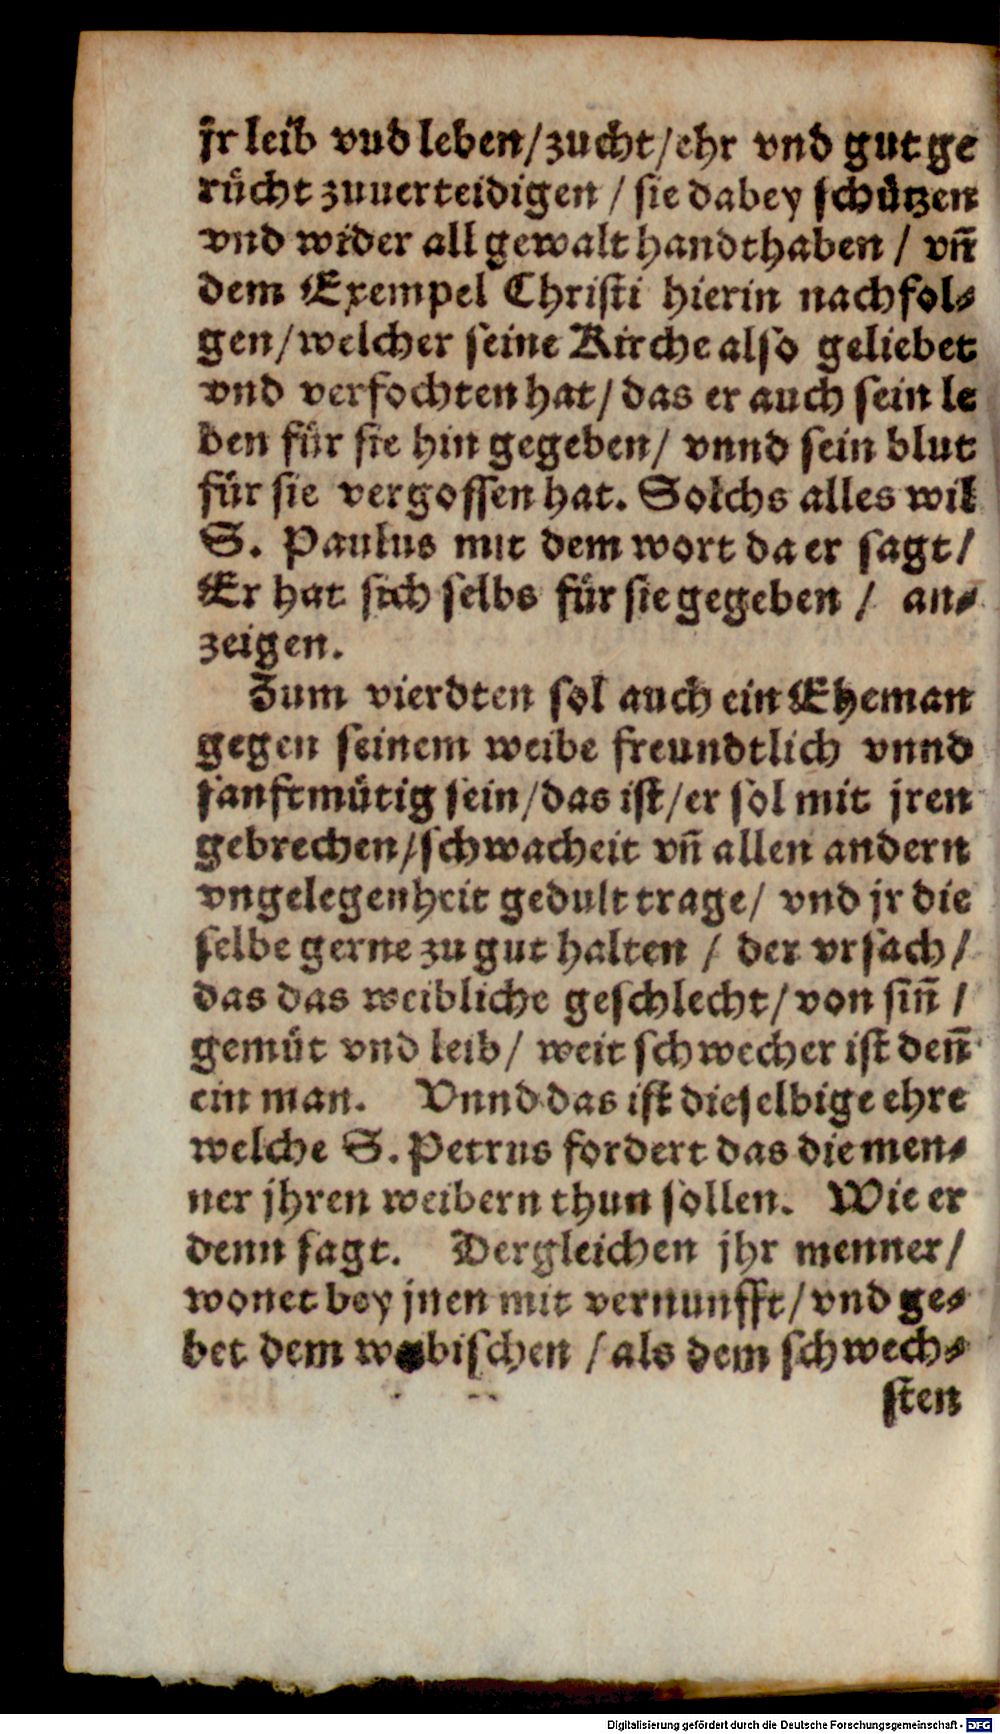 jr leib vnd leben/zucht/ehr vnd gut ge
rücht zuuerteidigen / sie dabey schützen
vnd wider all gewalt handthaben / vn̄
dem Exempel Christi hierin nachfol⸗
gen/welcher seine Kirche also geliebet
vnd verfochten hat/das er auch sein le
ben für sie hin gegeben/ vnnd sein blut
für sie vergossen hat. Solchs alles wil
S. Paulus mit dem wort da er sagt/
Er hat sich selbs für sie gegeben / an⸗
zeigen.
Zum vierdten sol auch ein Eheman
gegen seinem weibe freundtlich vnnd
sanftmütig sein/das ist/er sol mit jren
gebrechen/schwacheit vn̄ allen andern
vngelegenheit gedult trage/ vnd jr die
selbe gerne zu gut halten / der vrsach/
das das weibliche geschlecht/von sin̄ /
gemüt vnd leib/ weit schwecher ist den̄
ein man. Vnnd das ist dieselbige ehre
welche S. Petrus fordert das die men⸗
ner jhren weibern thun sollen. Wie er
denn sagt. Dergleichen jhr menner/
wonet bey jnen mit vernunfft/vnd ge⸗
bet dem webischen /als dem schwech⸗
sten
Digitalisierung gefördert durch die Deutsche Forschungsgemeinschaft - DFG